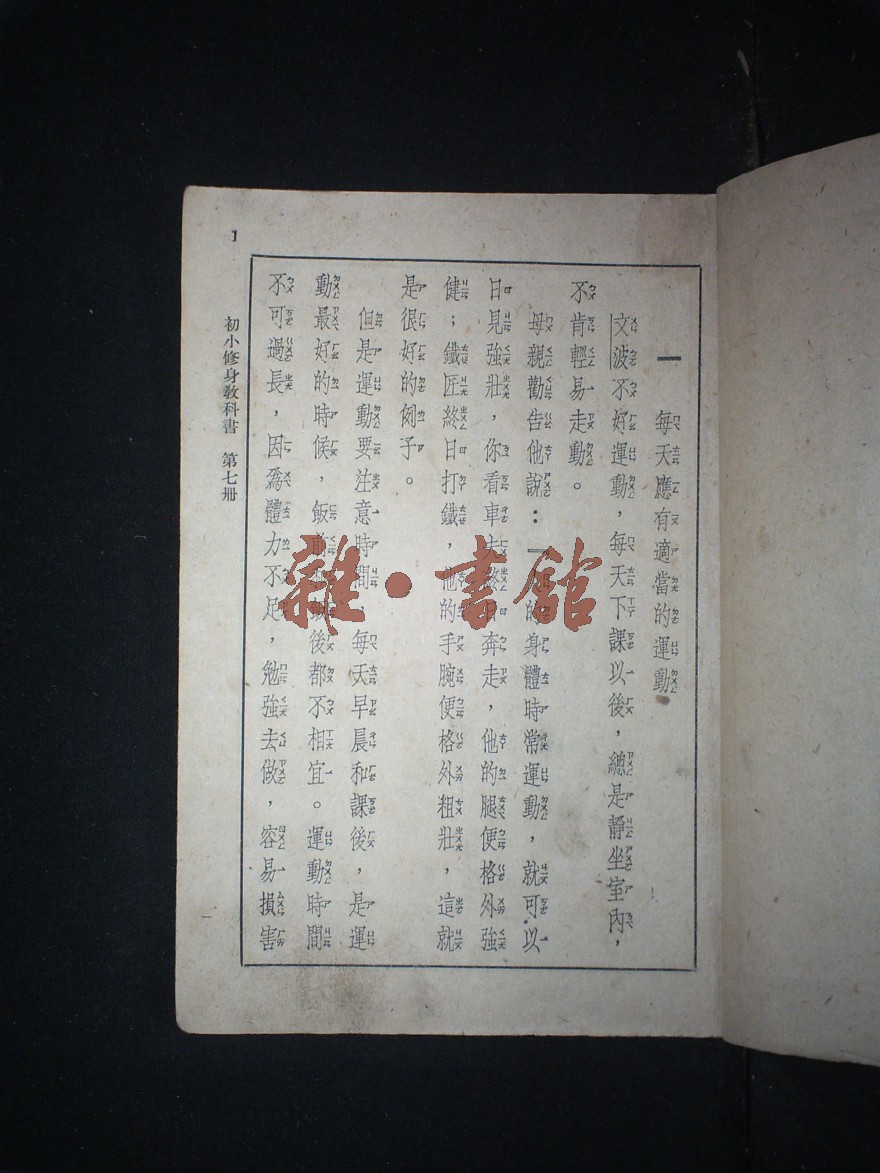 一 每天應有適當的運動
文波不好運動，每天下課以後，總是靜坐室內，
不肯輕易走動。
母親勸告他說：「的身體時常運動，就可以
日見強壯，你看車夫終日奔走，他的腿便格外強
健；鐵匠終日打鐵，他的手腕便格外粗壯，這就
是很好的例子。
但是運動要注意時間，每天早晨和課後，是運
動最好的時候，飯前和飯後都不相宜。運動時間
不可過長，因爲體力不足，勉強去做，容易損害
初小修身教科書 第七册
1
雜·書館